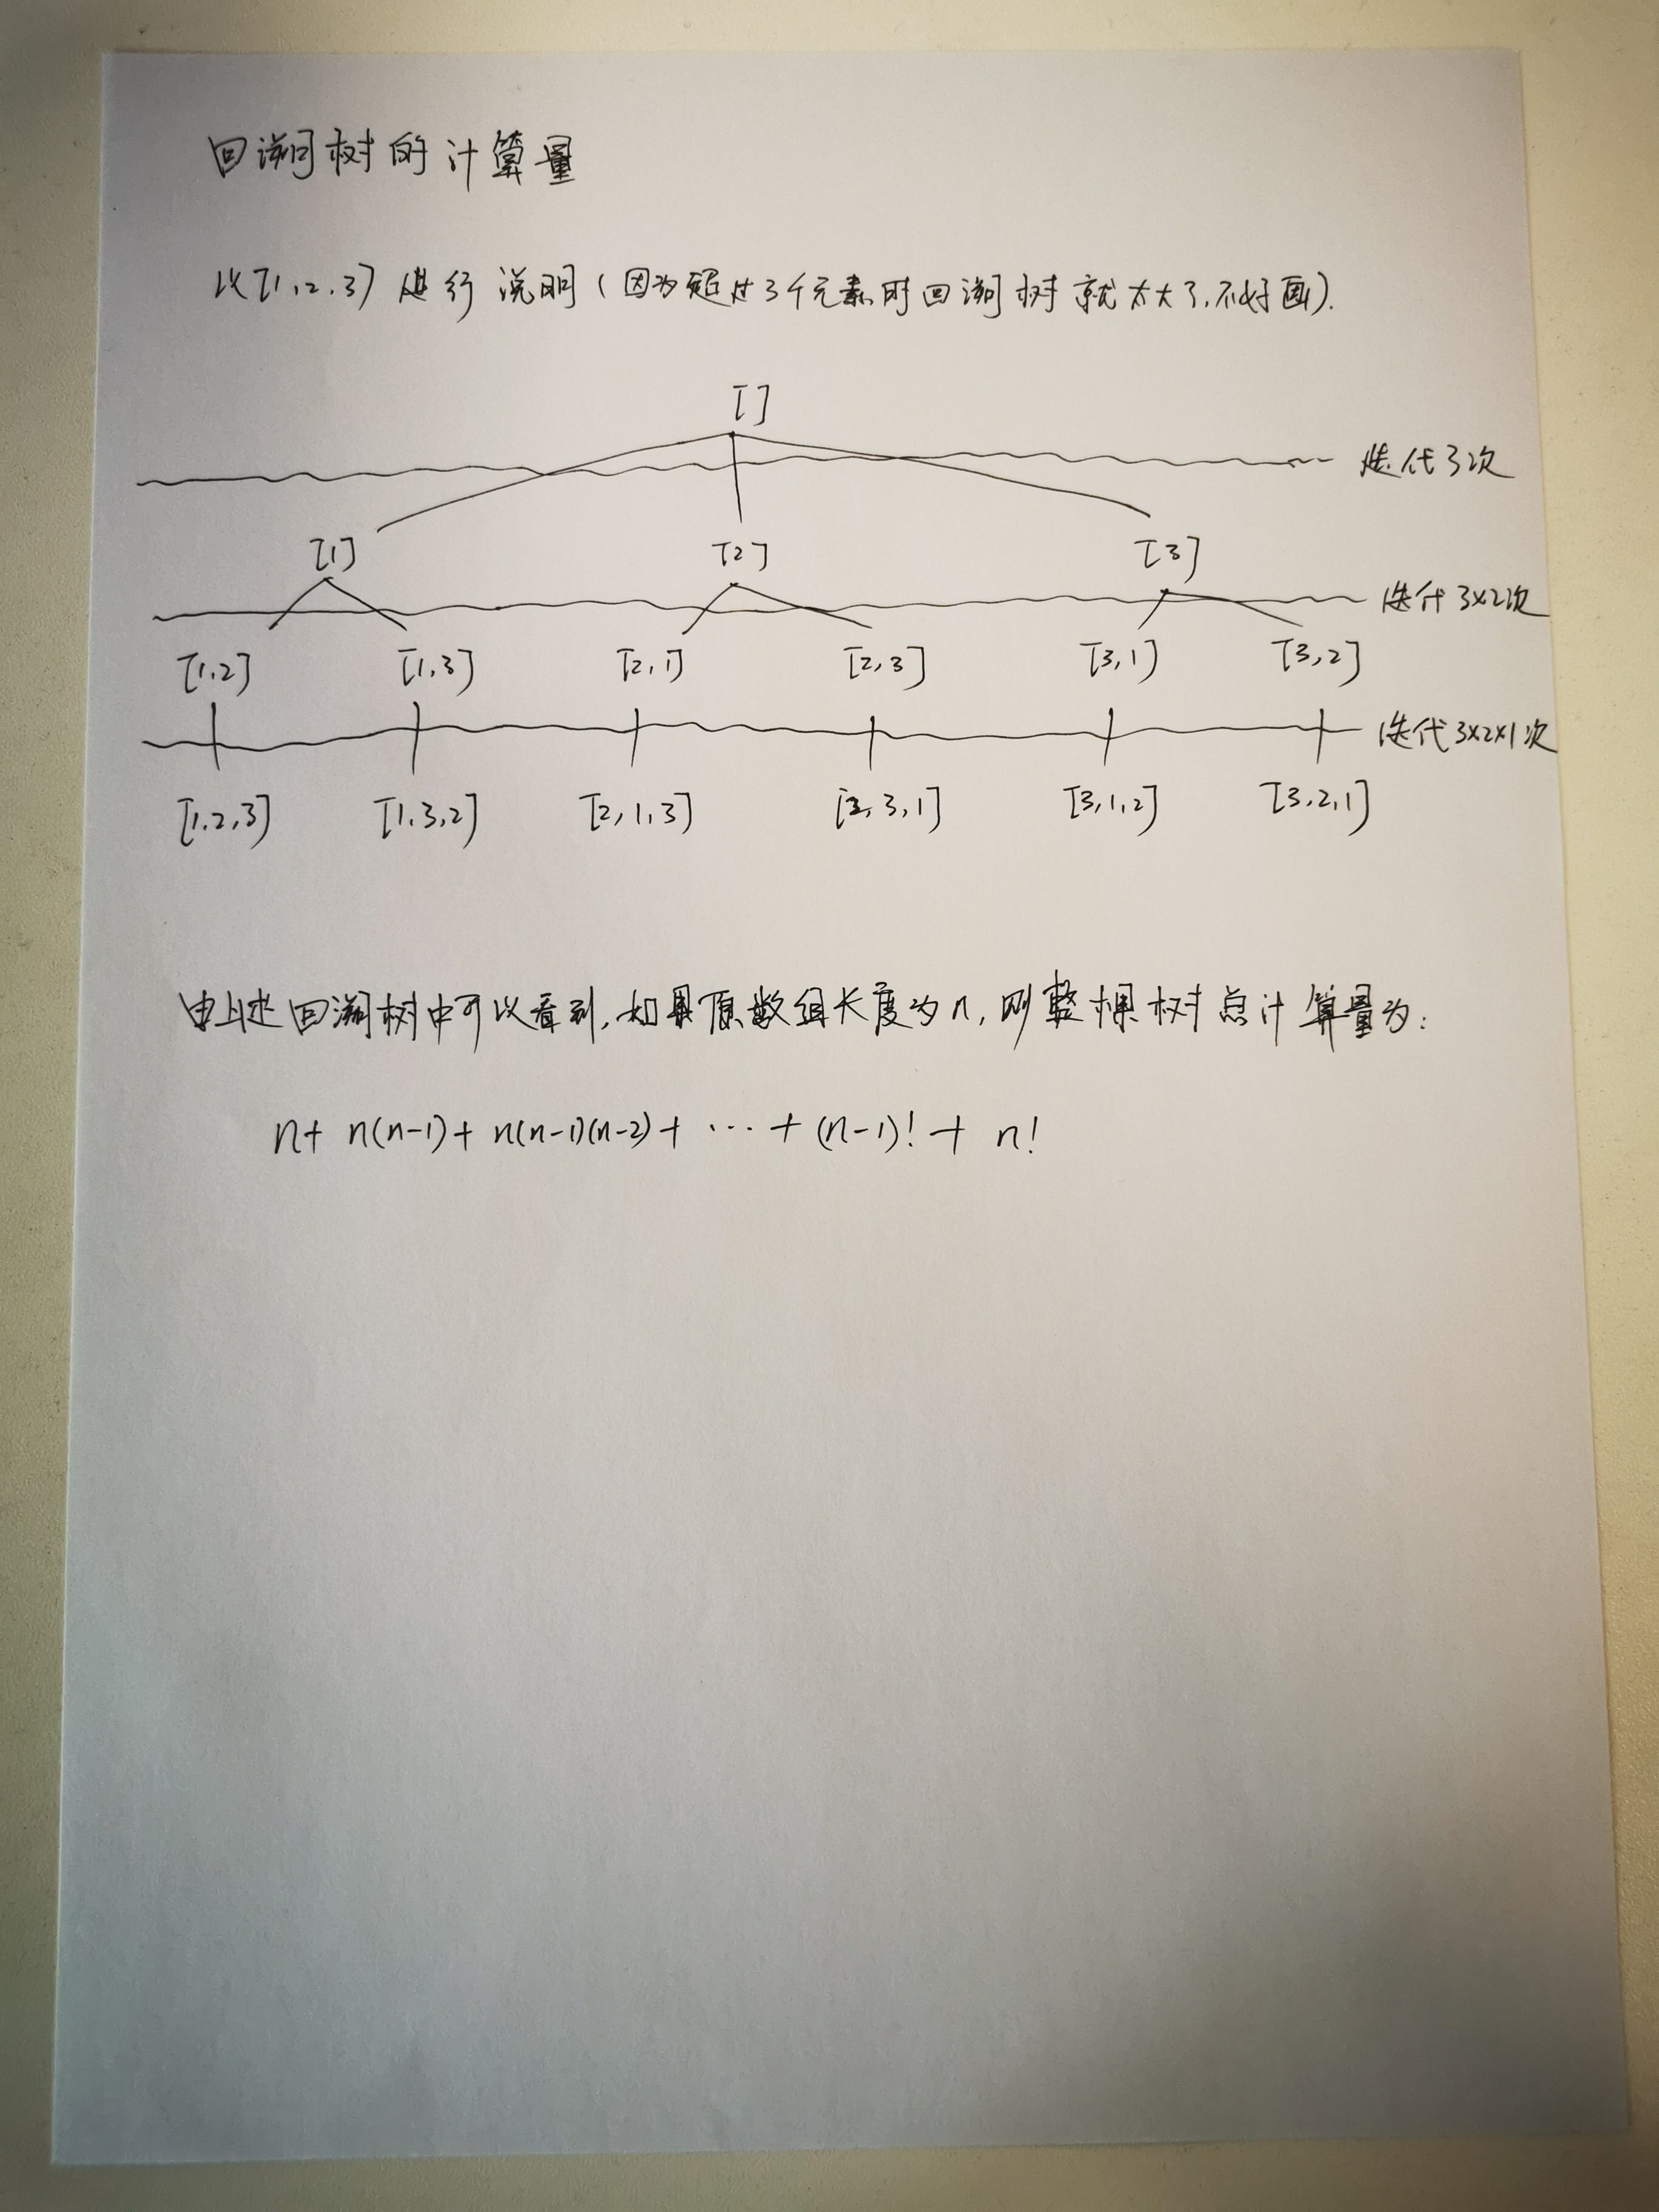 回溯树的计算量
以[1,2,3]进行说明(因为超过3个元素时回溯树就太大了,不好画).
[]
迭代3次
[1] [2] [3]
迭代3×2次
[1,2] [1,3] [2,1] [2,3] [3,1] [3,2]
迭代3×2×1次
[1,2,3] [1,3,2] [2,1,3] [2,3,1] [3,1,2] [3,2,1]
由上述回溯树中可以看到,如果原数组长度为n,则整棵树点计算量为:
n+ n(n-1)+ n(n-1)(n-2)+ ··· + (n-1)! + n!